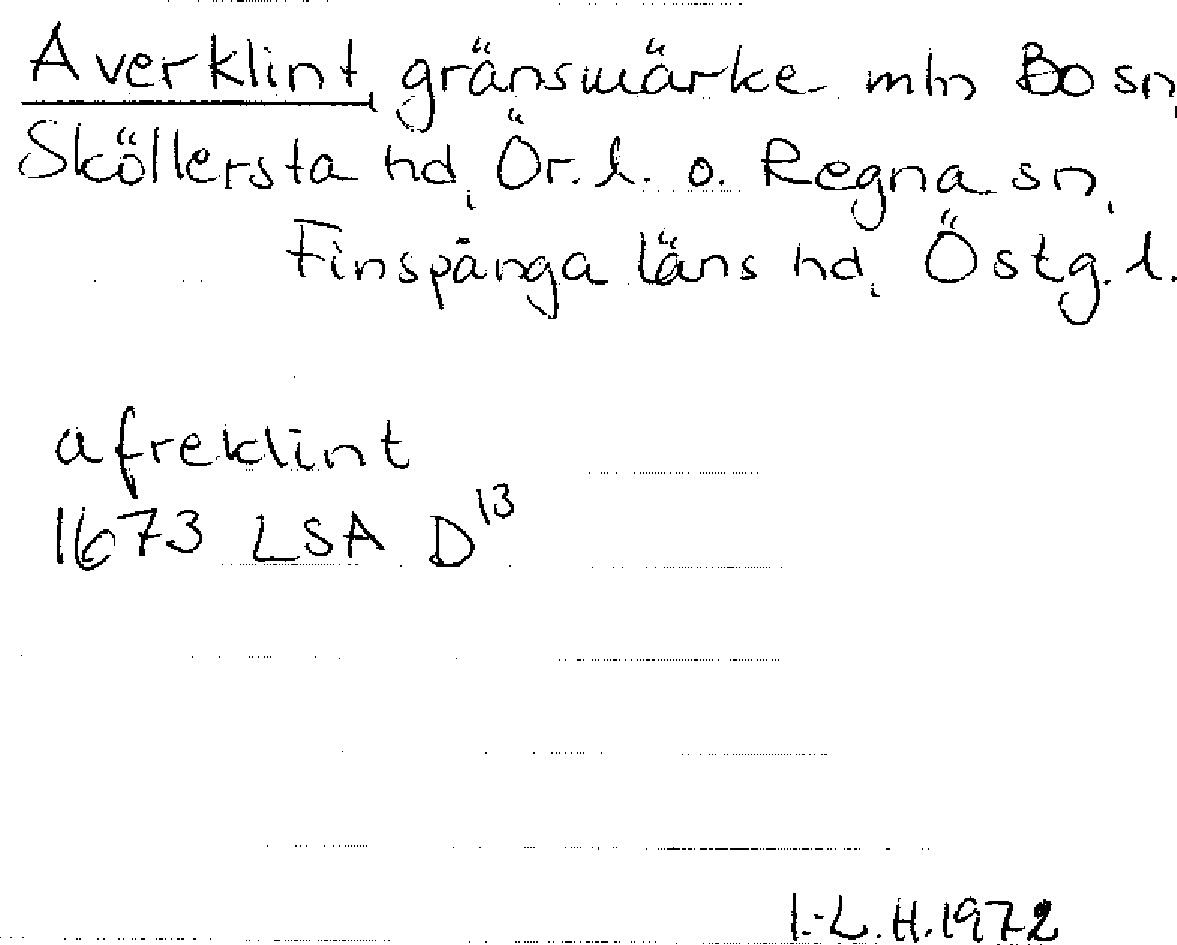 Averklint, gränsmärke mln Bo sn,
Sköllersta hd, Ör. l. o. Regna sn,
Finspånga läns hd, Östg. l.
afreklint
1673 LSA D¹³
I.-L. H. 1972